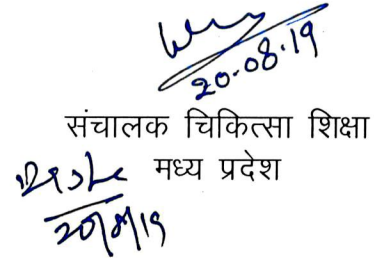 20.08.19
संचालक चिकित्सा शिक्षा
मध्य प्रदेश
20/8/19